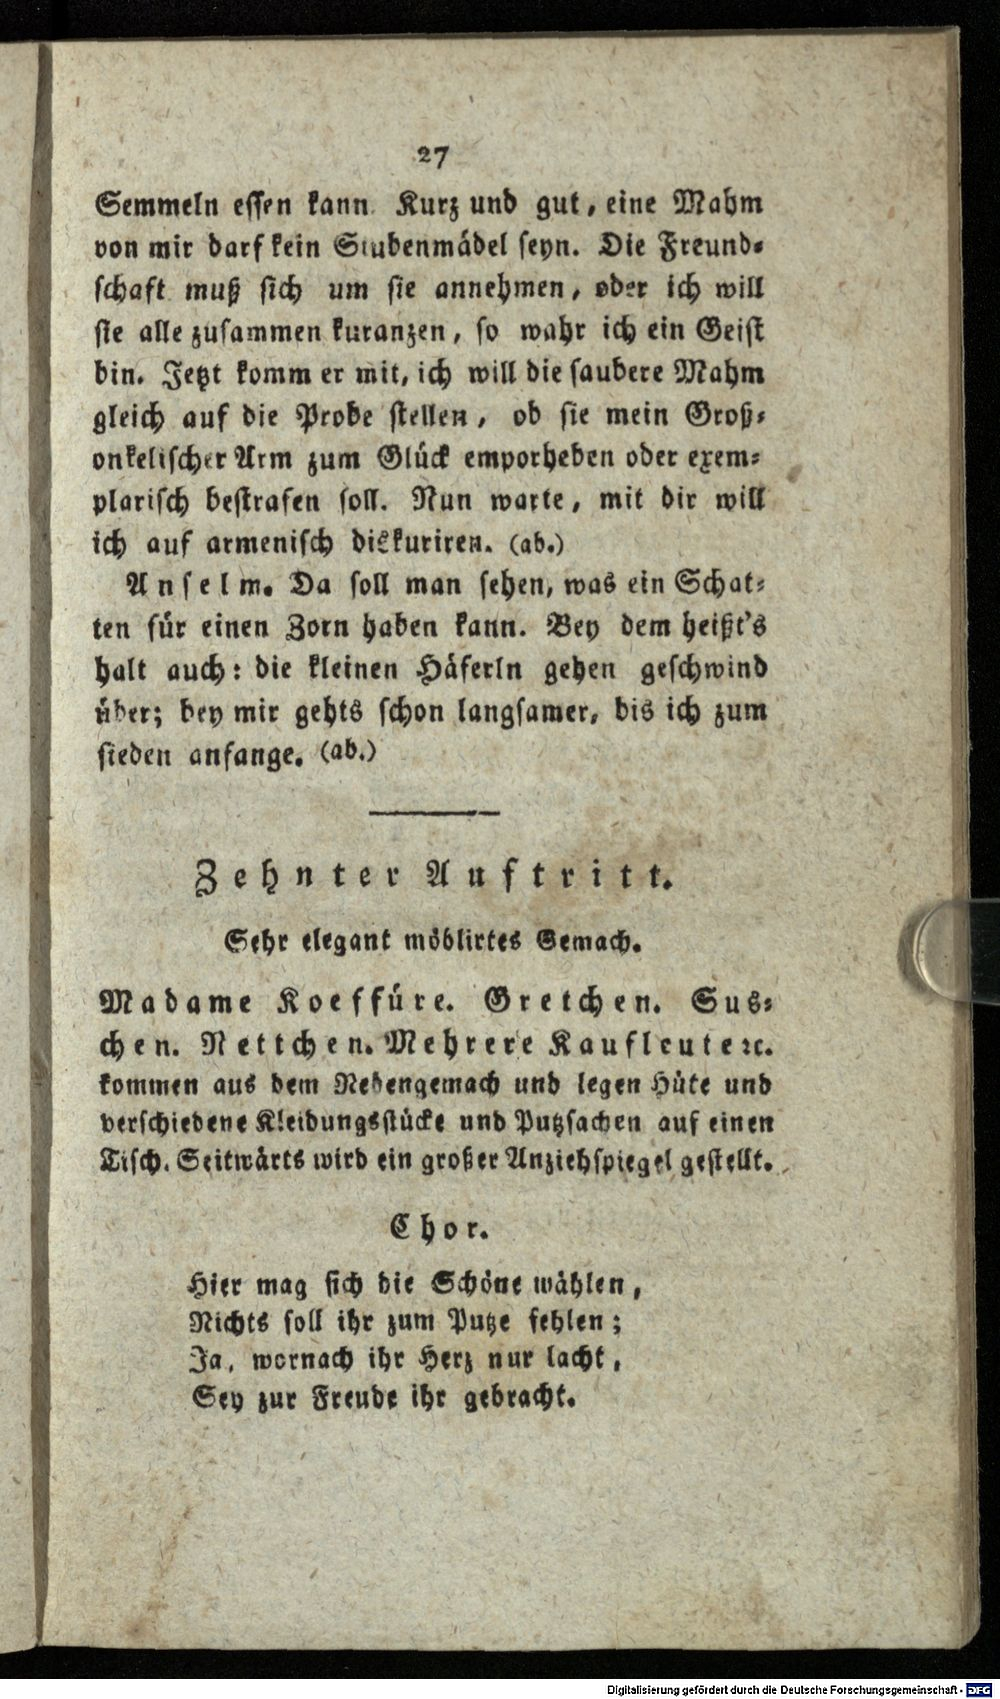 27
Semmeln essen kann. Kurz und gut, eine Mahm
von mir darf kein Stubenmädel seyn. Die Freund-
schaft muß sich um sie annehmen, oder ich will
sie alle zusammen kuranzen, so wahr ich ein Geist
bin. Jetzt komm er mit, ich will die saubere Mahm
gleich auf die Probe stellen, ob sie mein Groß-
onkelischer Arm zum Glück emporheben oder exem-
plarisch bestrafen soll. Nun warte, mit dir will
ich auf armenisch diskuriren. (ab.)
Anselm. Da soll man sehen, was ein Schat-
ten für einen Zorn haben kann. Bey dem heißt's
halt auch: die kleinen Häferln gehen geschwind
über; bey mir gehts schon langsamer, bis ich zum
sieden anfange. (ab.)
Zehnter Auftritt.
Sehr elegant möblirtes Gemach.
Madame Koeffüre. Gretchen. Sus-
chen. Nettchen. Mehrere Kaufleute ꝛc.
kommen aus dem Nebengemach und legen Hüte und
verschiedene Kleidungsstücke und Putzsachen auf einen
Tisch. Seitwärts wird ein großer Anziehspiegel gestellt.
Chor.
Hier mag sich die Schöne wählen,
Nichts soll ihr zum Putze fehlen;
Ja, wornach ihr Herz nur lacht,
Sey zur Freude ihr gebracht.
Digitalisierung gefördert durch die Deutsche Forschungsgemeinschaft - DFG